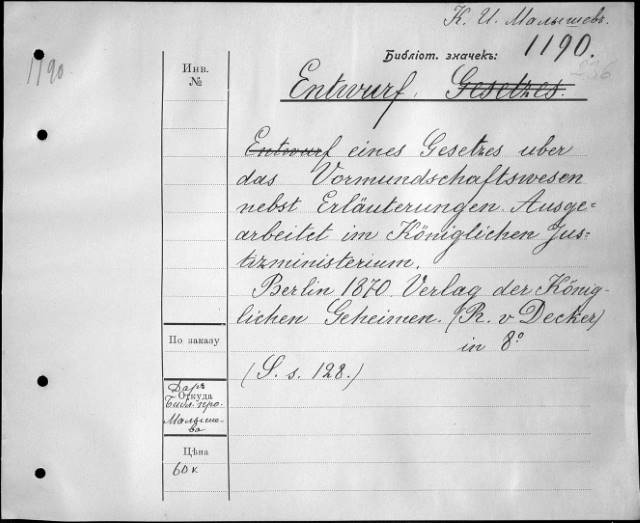 К. И. Малышевъ.
Библіот. значекъ: 1190.
1190
236
Инв.
№
Entwurf. Gesetzes.
Entwurf eines Gesetzes uber
das Vormundschaftswesen
nebst Erläuterungen. Ausge=
arbeitet im Königlichen Jus=
tizministerium.
Berlin 1870. Verlag der König-
lichen Geheimen. (R. v Decker)
in 8°
(S. s. 128.)
По заказу
Откуда
Даръ
Библ. про.
Малыше-
ва
Цѣна
60 к.